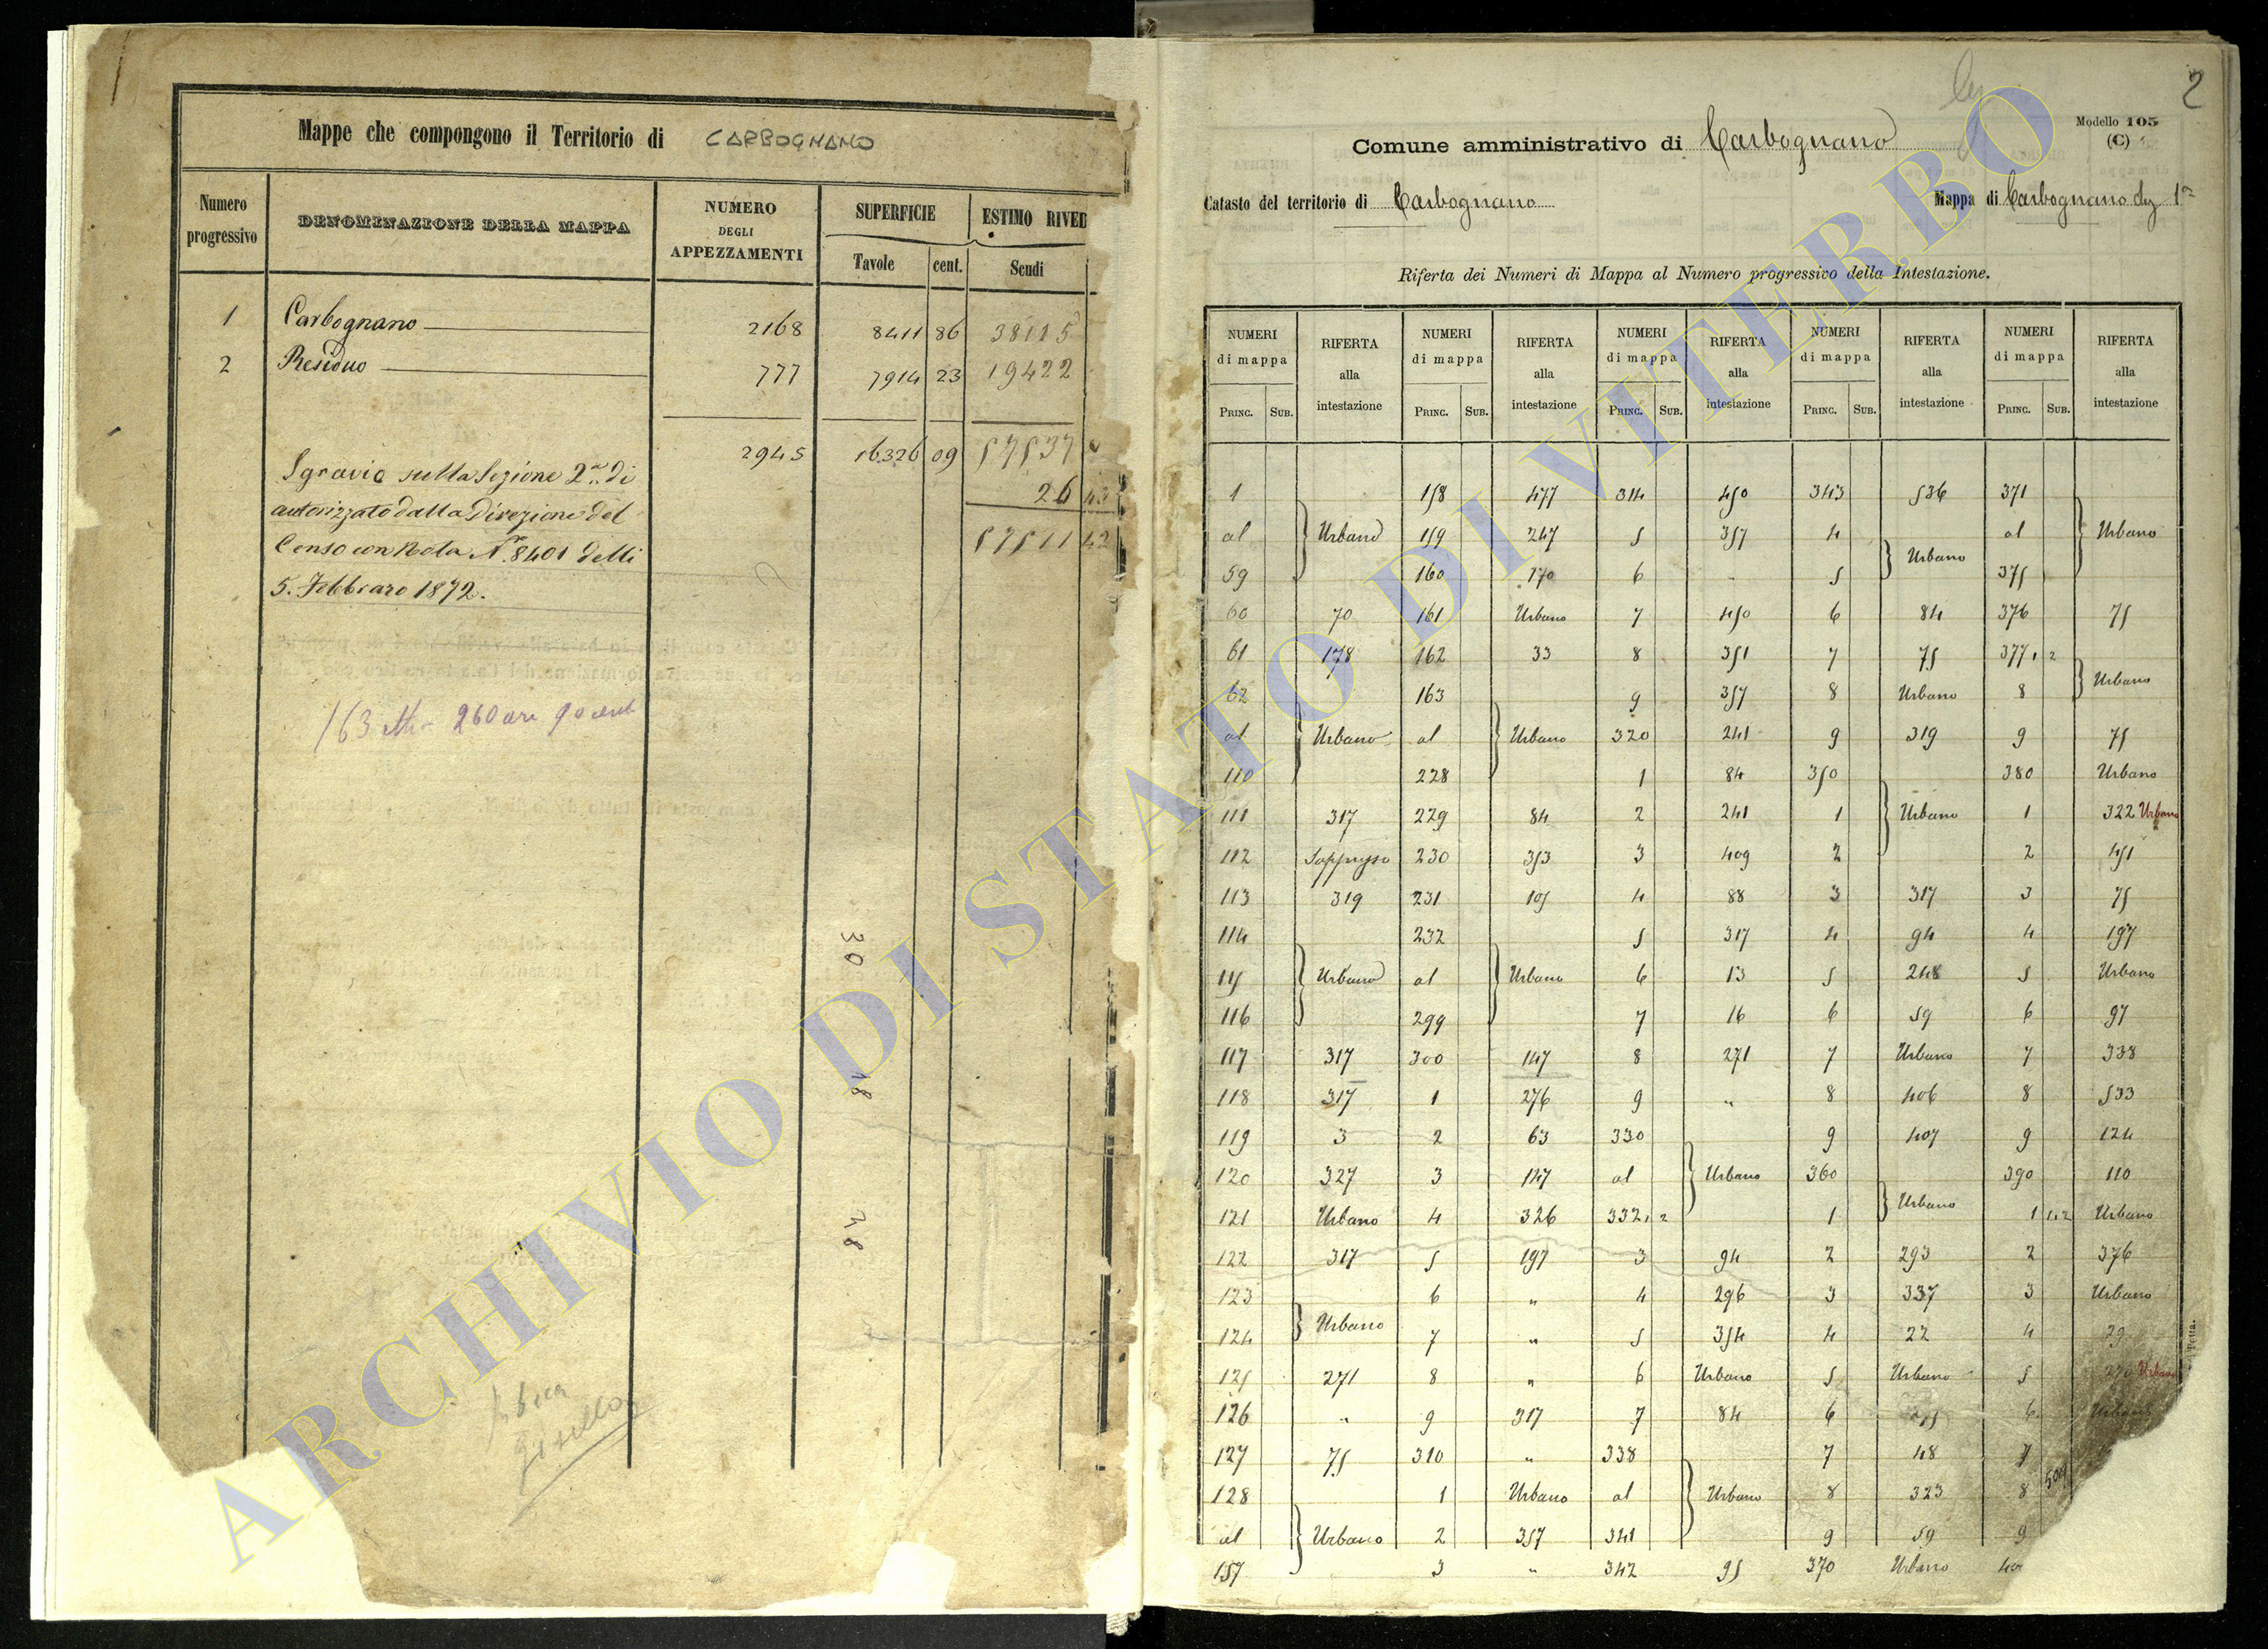 Mappe che compongono il Territorio di CARBOGNANO
Numero progressivo
DENOMINAZIONE DELLA MAPPA
NUMERO DEGLI APPEZZAMENTI
SUPERFICIE
ESTIMO RIVED
Tavole cent. Scudi
1 Carbognano 2168 8411 86 38115
2 Residuo 777 7914 23 19422
2945 16326 09 57537
Sgravio sulla Sezione 2a di 26 43
autorizzato dalla Direzione del
57511 42
Censo con Nota N. 8401 delli
5. Febbraro 1872.
30
18
28
2
Modello 105
(C)
Comune amministrativo di Carbognano
Catasto del territorio di Carbognano
Mappa di Carbognano 1a
Riferta dei Numeri di Mappa al Numero progressivo della Intestazione.
NUMERI di mappa RIFERTA alla intestazione NUMERI di mappa RIFERTA alla intestazione NUMERI di mappa RIFERTA alla intestazione NUMERI di mappa RIFERTA alla intestazione NUMERI di mappa RIFERTA alla intestazione
PRINC. SUB. PRINC. SUB. PRINC. SUB. PRINC. SUB. PRINC. SUB.
1 158 477 314 450 343 536 371
al Urbano 159 247 5 357 4 Urbano al Urbano
59 160 170 6 " 5 375
60 70 161 Urbano 7 450 6 84 376 75
61 178 162 33 8 351 7 75 377 1 2 Urbano
62 163 9 357 8 Urbano 8
al Urbano al Urbano 320 241 9 319 9 75
110 228 1 84 350 380 Urbano
111 317 229 84 2 241 1 Urbano 1 322 Urbano
112 Soppresso 230 353 3 409 2 2 451
113 319 231 105 4 88 3 317 3 75
114 232 5 317 4 94 4 197
115 Urbano al Urbano 6 13 5 248 5 Urbano
116 299 7 16 6 59 6 97
117 317 300 147 8 271 7 Urbano 7 338
118 317 1 276 9 " 8 406 8 533
119 3 2 63 330 9 407 9 124
120 327 3 147 al Urbano 360 390 110
121 Urbano 4 326 332 1 2 1 Urbano 1 1.2 Urbano
122 317 5 197 3 94 2 293 2 376
123 6 " 4 296 3 337 3 Urbano
124 Urbano 7 " 5 354 4 22 4 29
125 271 8 " 6 Urbano 5 Urbano 5 Urbano
126 " 9 317 7 84 6 6 Urbano
127 75 310 " 338 7 48 7
128 1 Urbano al Urbano 8 323 8
al Urbano 2 357 341 9 59 9
157 3 " 342 95 370 Urbano
ARCHIVIO DI STATO DI VITERBO